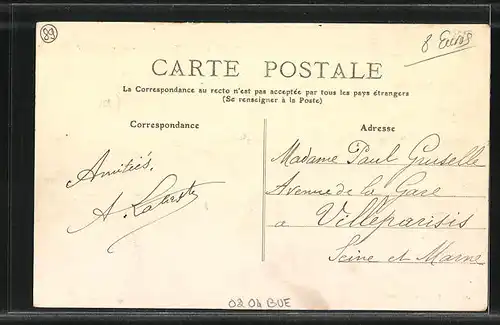 89
8 Euros
CARTE POSTALE
La Correspondance au recto n'est pas acceptée par tous les pays étrangers
(Se renseigner à la Poste)
Correspondance
Adresse
Amitiés,
A.
Madame Paul Gruselle
Avenue de la Gare
a Villeparisis
Seine et Marne
02 04 BUE